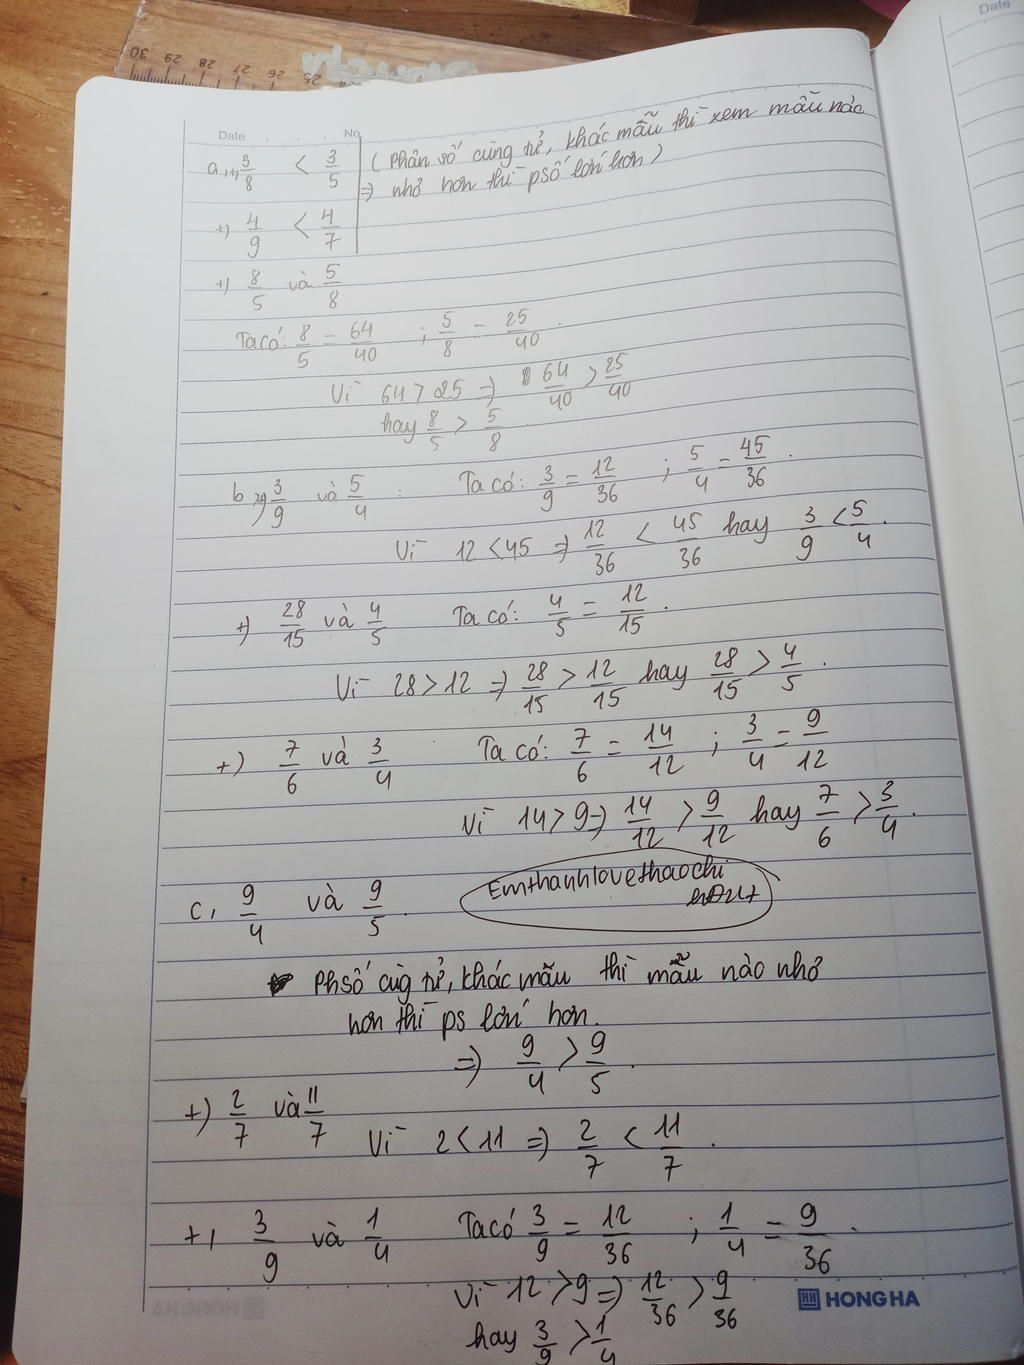 30 29 28 27 26 25
Date
Date . . . No.
a, +, 3/8 < 3/5 (Phân số cùng tử, khác mẫu thì xem mẫu nào
=> nhỏ hơn thì psố lớn hơn)
+) 4/9 < 4/7
+) 8/5 và 5/8
Ta có: 8/5 = 64/40 ; 5/8 = 25/40.
Vì 64 > 25 => 64/40 > 25/40
hay 8/5 > 5/8
b, 3/9 và 5/4 . Ta có: 3/9 = 12/36 ; 5/4 = 45/36.
Vì 12 < 45 => 12/36 < 45/36 hay 3/9 < 5/4.
+) 28/15 và 4/5 Ta có: 4/5 = 12/15.
Vì 28 > 12 => 28/15 > 12/15 hay 28/15 > 4/5.
+) 7/6 và 3/4 Ta có: 7/6 = 14/12 ; 3/4 = 9/12
Vì 14 > 9 => 14/12 > 9/12 hay 7/6 > 3/4.
c, 9/4 và 9/5. Emthanhlovethaochi
Phsố cùg tử, khác mẫu thì mẫu nào nhỏ
hơn thì ps lớn hơn.
=> 9/4 > 9/5.
+) 2/7 và 11/7
Vì 2 < 11 => 2/7 < 11/7.
+, 3/9 và 1/4 Ta có 3/9 = 12/36 ; 1/4 = 9/36.
Vì 12 > 9 => 12/36 > 9/36
HONG HA
hay 3/9 > 1/4